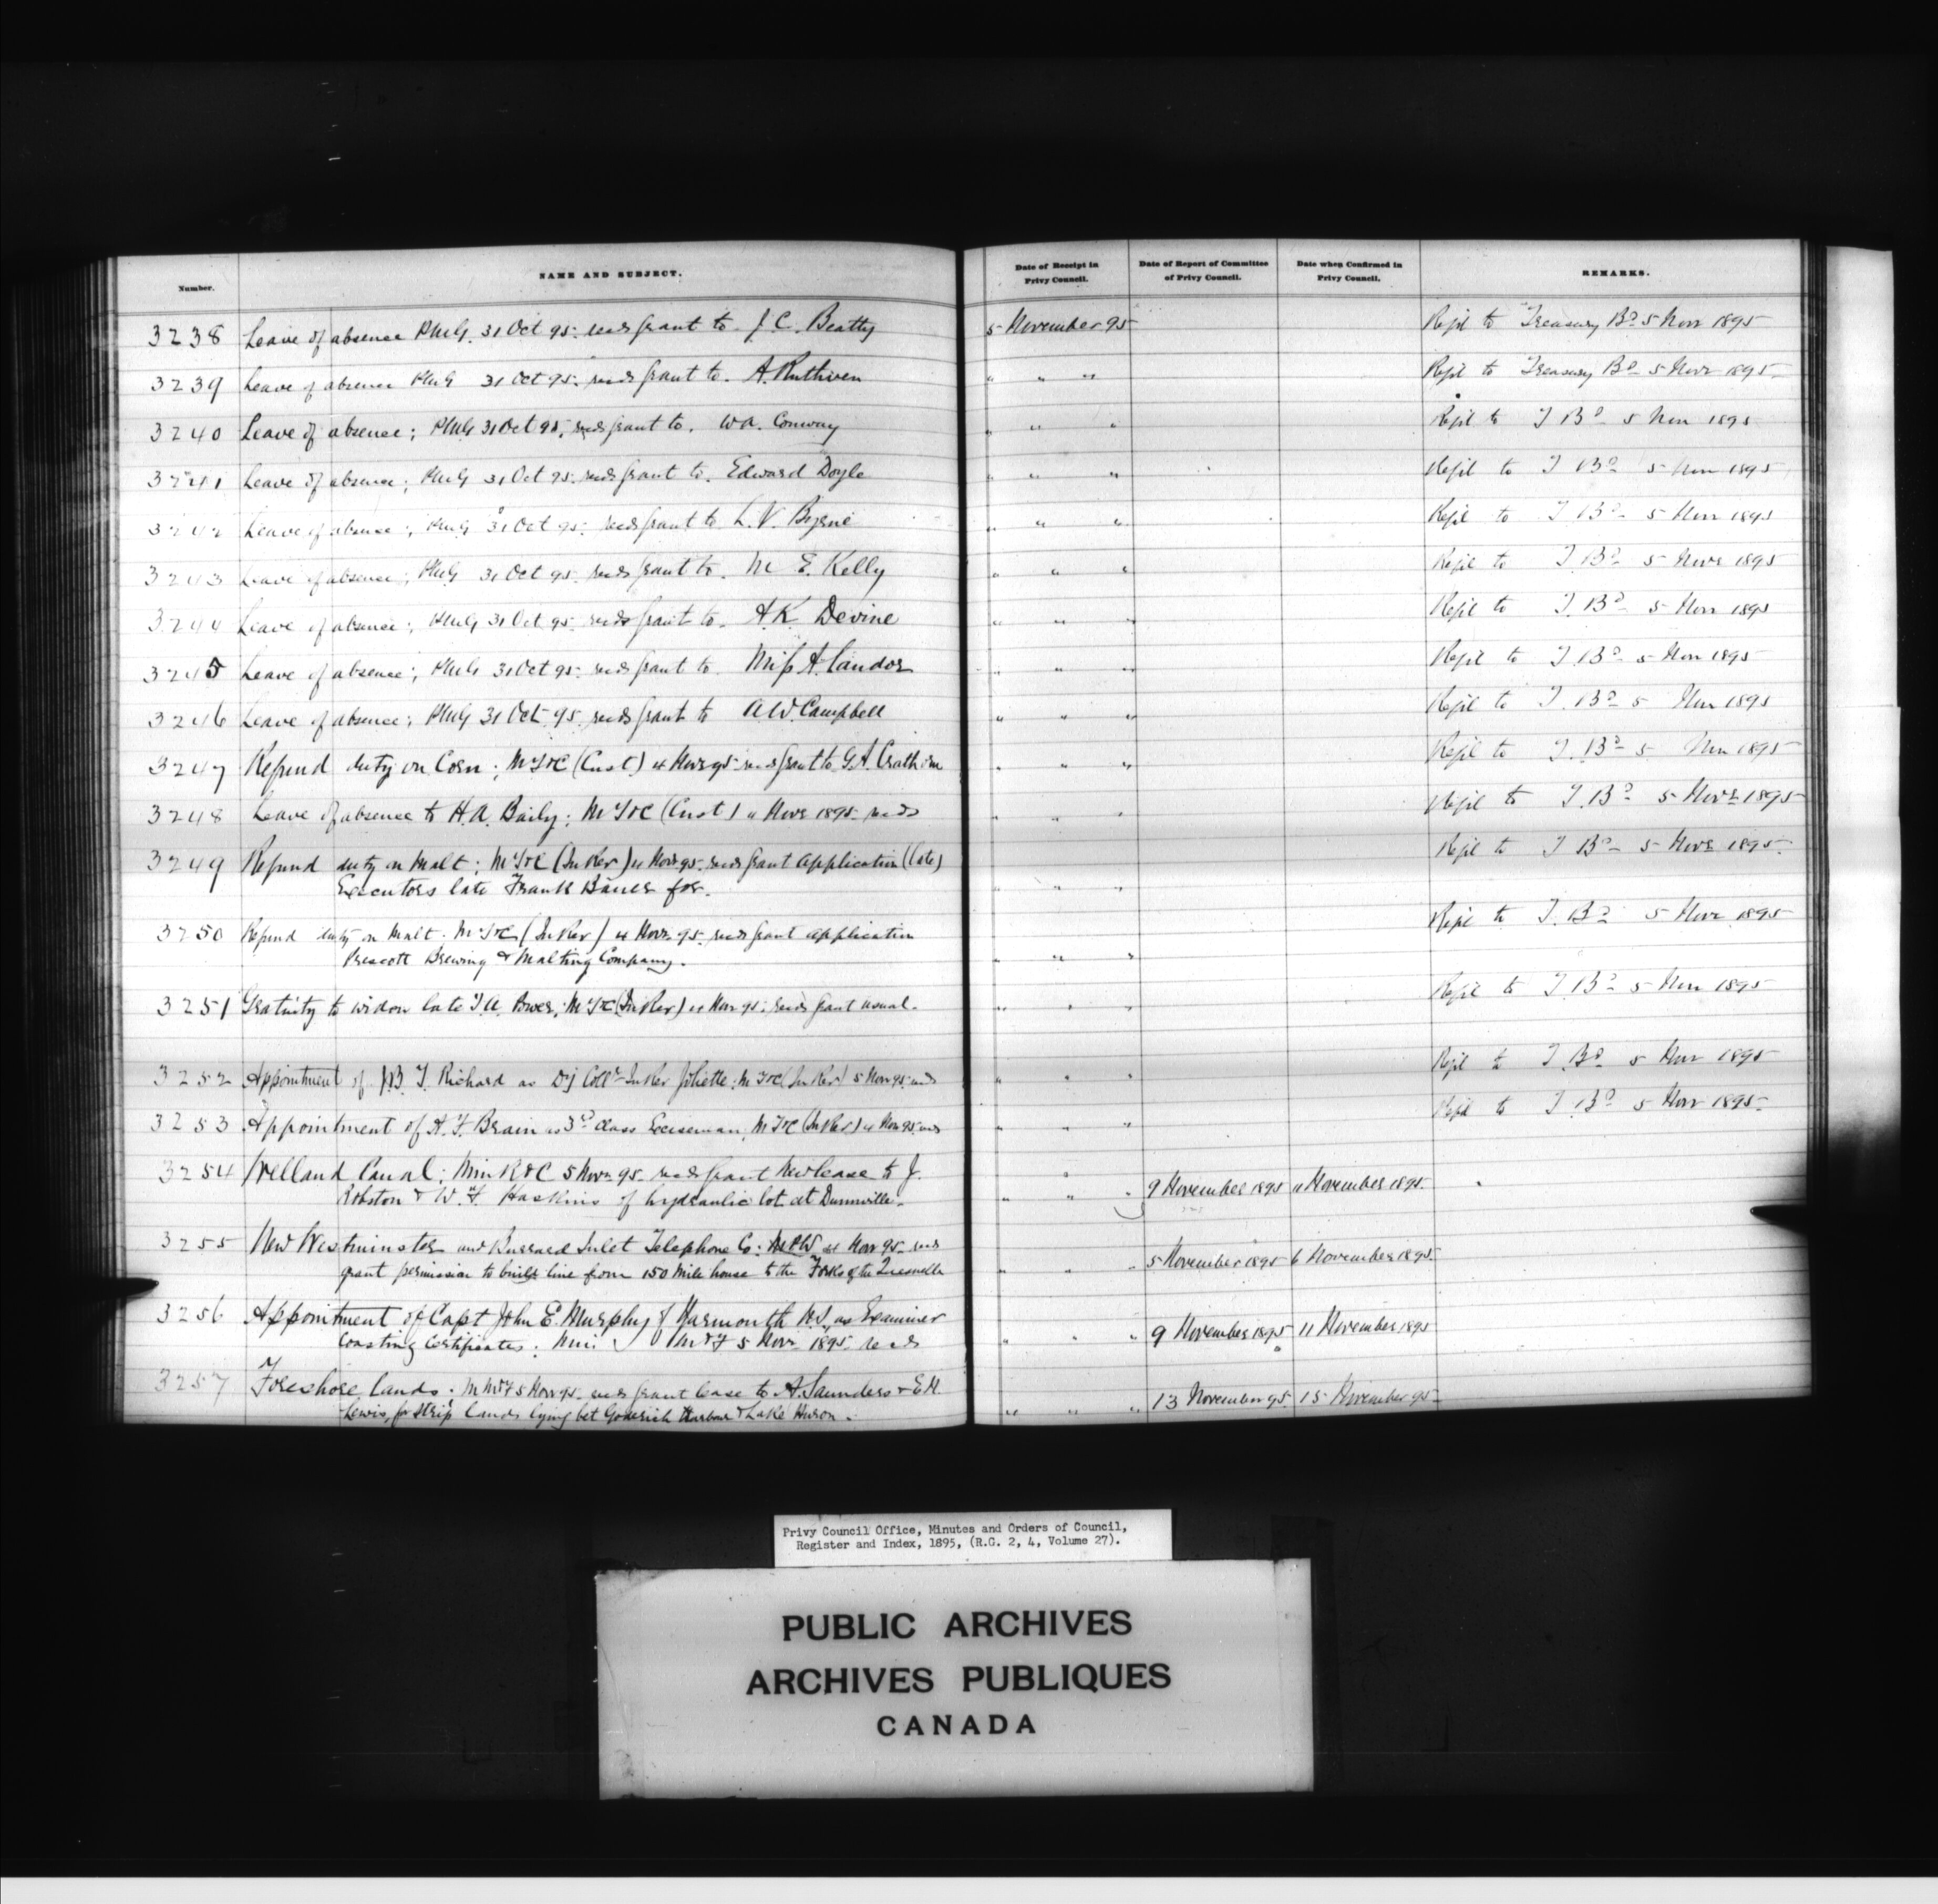 Number. NAME AND SUBJECT. Date of Receipt in Privy Council. Date of Report of Committee of Privy Council. Date when Confirmed in Privy Council. REMARKS.
3238 Leave of absence PMG. 31 Oct 95. recds grant to J. C. Beatty 5 November 95 Refd to Treasury Bd 5 Novr 1895
3239 Leave of absence PMG 31 Oct 95. recds grant to. A. Ruthven " " " Refd to Treasury Bd 5 Novr 1895
3240 Leave of absence; PMG 31 Oct 95. recds grant to. W A. Conway " " " Refd to T Bd 5 Nov 1895
3241 Leave of absence; PMG 31 Oct 95. recds grant to. Edward Doyle " " " Refd to T Bd 5 Nov 1895
3242 Leave of absence; PMG 31 Oct 95. recds grant to L. V. Byrne " " " Refd to T Bd 5 Nov 1895
3243 Leave of absence; PMG 31 Oct 95 recds grant to. M E. Kelly " " " Refd to T. Bd 5 Novr 1895
3244 Leave of absence; PMG 31 Oct 95. recds grant to. A. K. Devine " " " Refd to T. Bd 5 Nov 1895
3245 Leave of absence; PMG 31 Oct 95. recds grant to. Miss A. " " Refd to T. Bd 5 Nov 1895
3246 Leave of absence; PMG 31 Oct 95. recds grant to A W. Campbell " " " Refd to T. Bd 5 Nov 1895
3247 Refund duty on Corn; M T&C (Cust) 4 Novr 95 recds grant to G. A. " " " Refd to T. Bd 5 Nov 1895
3248 Leave of absence to H. A. Baily; M T&C (Cust) 4 Novr 1895 recds " " " Refd to T. Bd 5 Novr 1895
3249 Refund duty on Malt; M T&C (In Rev) 4 Novr 95. recds grant application (late) Refd to T Bd 5 Novr 1895
Executors late Frank Bauer for. " " "
3250 Refund duty on Malt. M T&C (In Rev) 4 Novr 95. recds grant application Refd to T. Bd 5 Novr 1895
Prescott Brewing & Malting Company. " " "
3251 Gratuity to widow late T. A. Power; M T&C (In Rev) 4 Nov 95; recds grant usual. " " " Refd to T. Bd 5 Nov 1895
3252 Appointment of J. B. T. Richard as Dy Collr In Rev Joliette; M T&C (In Rev) 5 Nov 95. recds " " " Refd to T. Bd 5 Novr 1895
3253 Appointment of H. F. Brain as 3rd class Exciseman; M T&C (In Rev) 4 Nov 95. recds " " " Refd to T. Bd 5 Novr 1895
3254 Welland Canal; Min R&C 5 Novr 95 recds grant New lease to J.
Rolston & W. F. Haskins of hydraulic lot at Dunnville. " " " 9 November 1895 11 November 1895.
3255 New Westminster and Burrard Inlet Telephone Co; M P W 4 Nov 95 recds
grant permission to build line from 150 Mile house to the Forks of the Quesnelle " " " 5 November 1895 6 November 1895.
3256 Appointment of Capt John E. Murphy of Yarmouth N S, as Examiner
Coasting Certificates; Min M&F 5 Novr 1895. recds " " " 9 November 1895 11 November 1895
3257 Foreshore Lands. M M&F 5 Nov 95. recds grant lease to A. Saunders & E. N.
Lewis, for strip lands lying bet Goderich Harbour & Lake Huron. " " " 13 November 95. 15 November 95
Privy Council Office, Minutes and Orders of Council,
Register and Index, 1895, (R.G. 2, 4, Volume 27).
PUBLIC ARCHIVES
ARCHIVES PUBLIQUES
CANADA